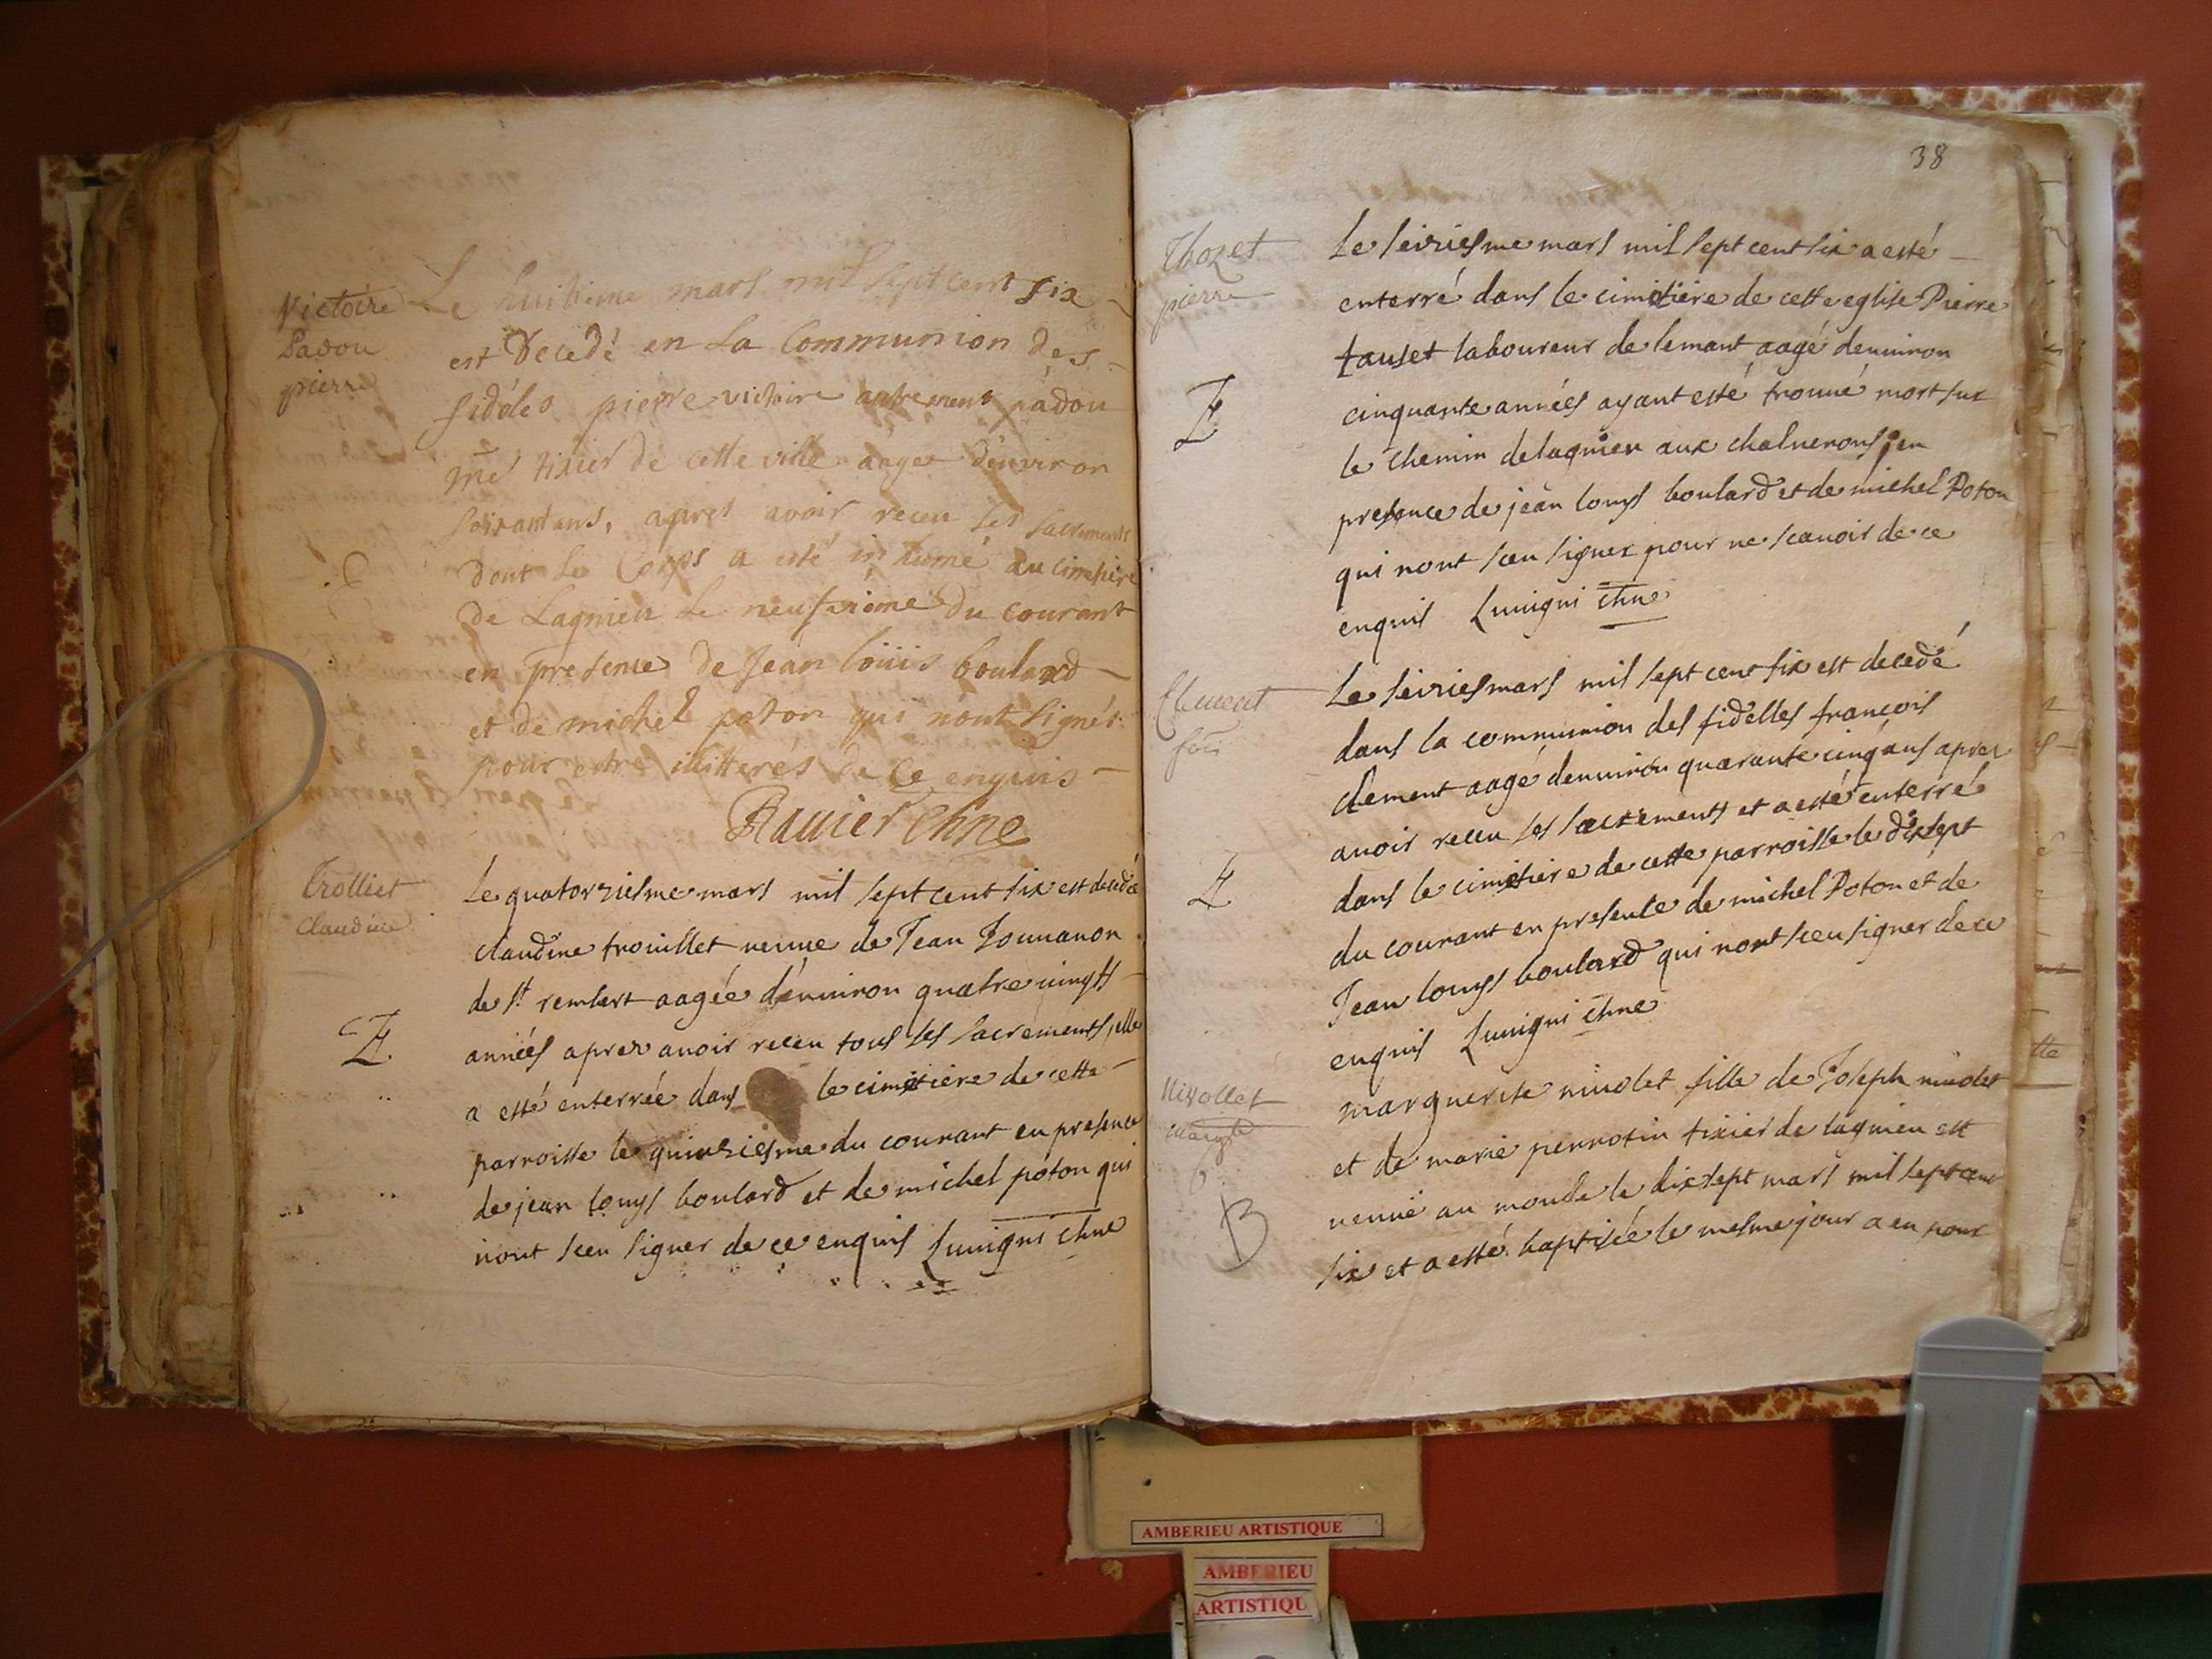 Victoire
Padou
pierre
Le huitieme mars mil sept cent six
est Decedé en La Communion Des
fidéles pierre victoire autrement padou
me tixier de cette ville aagé d'environ
soixantans, apres avoir receu ses sacrements
dont Le Corps a esté inhumé au cimetiere
De Lagnieu Le neufvieme Du courant
en presence De Jean loüis boulard
et de michel poton qui n'ont signés
pour estre illitterés de ce enquis
Ravier chne
Trolliet
Claudine
Le quatorziesme mars mil sept cent six est decedée
claudine trouillet veuve de Jean Jouvanon
de st rembert aagée d'environ quatre vingts
années apres avoir receu tous ses sacrements, elle
a esté enterrée dans le cimetiere de cette
parroisse le quinziesme du courant en presence
de jean louys boulard et de michel poton qui
nont sceu signer de ce enquis Luuigni chne
38
Thozet
pierre
Le seiziesme mars mil sept cent six a esté
enterré dans le cimetiere de cette eglise Pierre
tauset laboureur de lemant aagé denuiron
cinquante années ayant esté trouué mort sur
le chemin de lagnieu aux chaluerons, en
presence de jean louys boulard et de michel Poton
qui nont sceu signer pour ne scauoir de ce
enquis Luuigni chne
Clement
fois
Le seiziesmars mil sept cent six est decedé
dans la communion des fidelles françois
clement aagé denuiron quarante cinq ans apres
auoir receu ses sacrements et a esté enterré
dans le cimetiere de cette parroisse le dixsept
du courant en presence de michel Poton et de
Jean louys boulard qui nont sceu signer de ce
enquis Luuigni chne
Nivollet
margte
B
marguerite niuolet fille de Joseph niuolet
et de marie pernotin tixier de lagnieu est
venue au monde le dixsept mars mil sept cent
six et a esté baptisée le mesme jour a eu pour
AMBERIEU ARTISTIQUE
AMBERIEU
ARTISTIQU